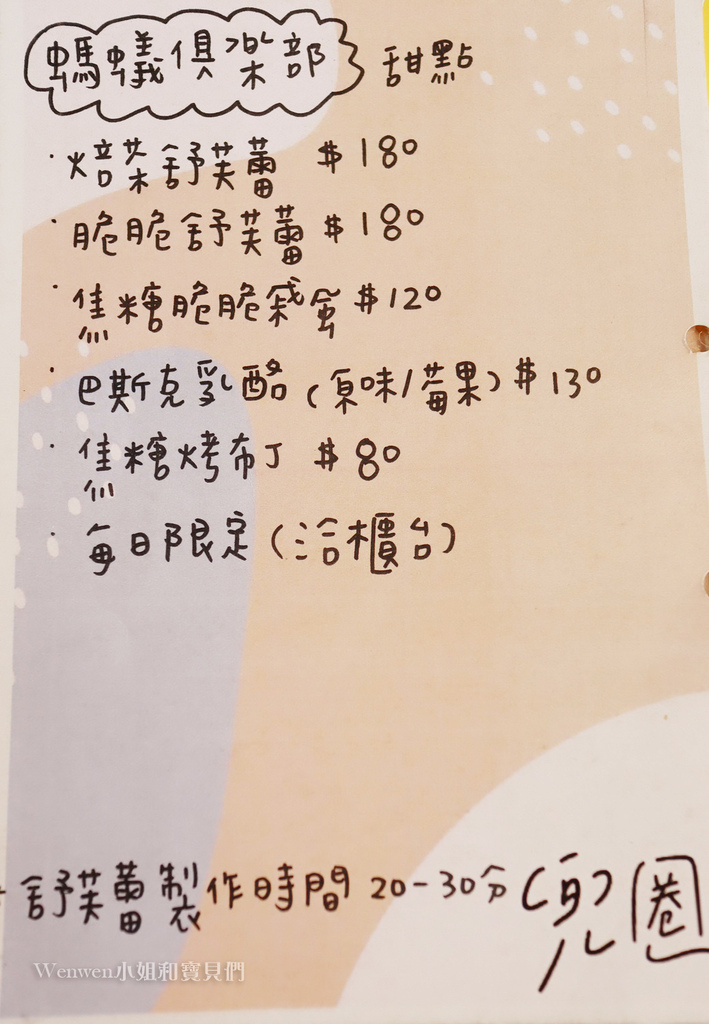 螞蟻俱樂部 甜點
·焙茶舒芙蕾 $180
·脆脆舒芙蕾 $180
·焦糖脆脆 $120
·巴斯克乳酪(原味/莓果) $130
·焦糖烤布丁 $80
·每日限定(洽櫃台)
舒芙蕾製作時間 20-30分
圈
Wenwen小姐和寶貝們